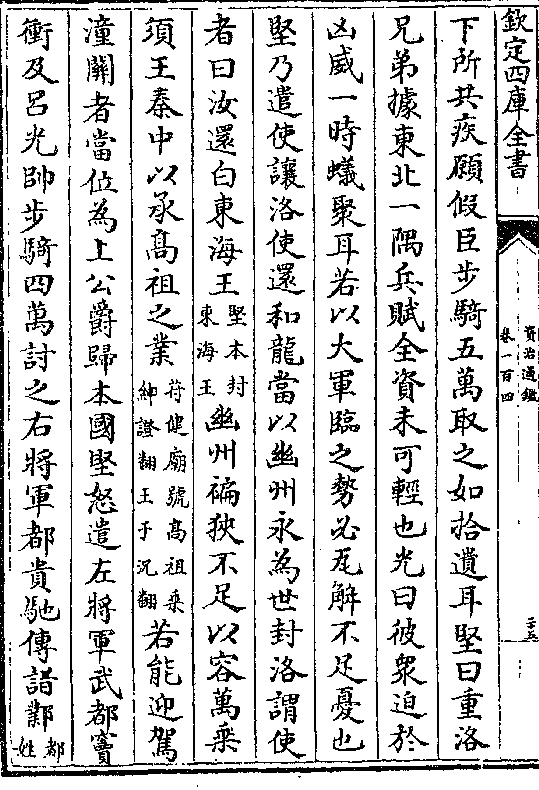 欽定四庫全書
資治通鑑
卷一百四
下所共疾願假臣步騎五萬取之如拾遺耳堅曰重洛
兄弟據東北一隅兵賦全資未可輕也光曰彼衆迫於
凶威一時蟻聚耳若以大軍臨之勢必瓦解不足憂也
堅乃遣使讓洛使還和龍當以幽州永為世封洛謂使
者曰汝還白東海王堅本封東海王幽州褊狹不足以容萬乗
須王秦中以承髙祖之業苻健廟號髙祖乗紳證翻王于況翻若能迎駕
潼關者當位為上公爵歸本國堅怒遣左將軍武都竇
衝及呂光帥步騎四萬討之右將軍都貴馳傳詣鄴都姓